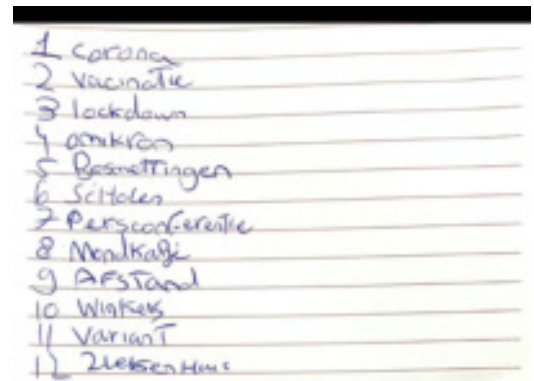 1 corona
2 vacinatie
3 lockdown
4 omikron
5 Besmettingen
6 SCHolen
7 Persconferentie
8 Mondkapje
9 AFSTand
10 Winkels
11 VarianT
12